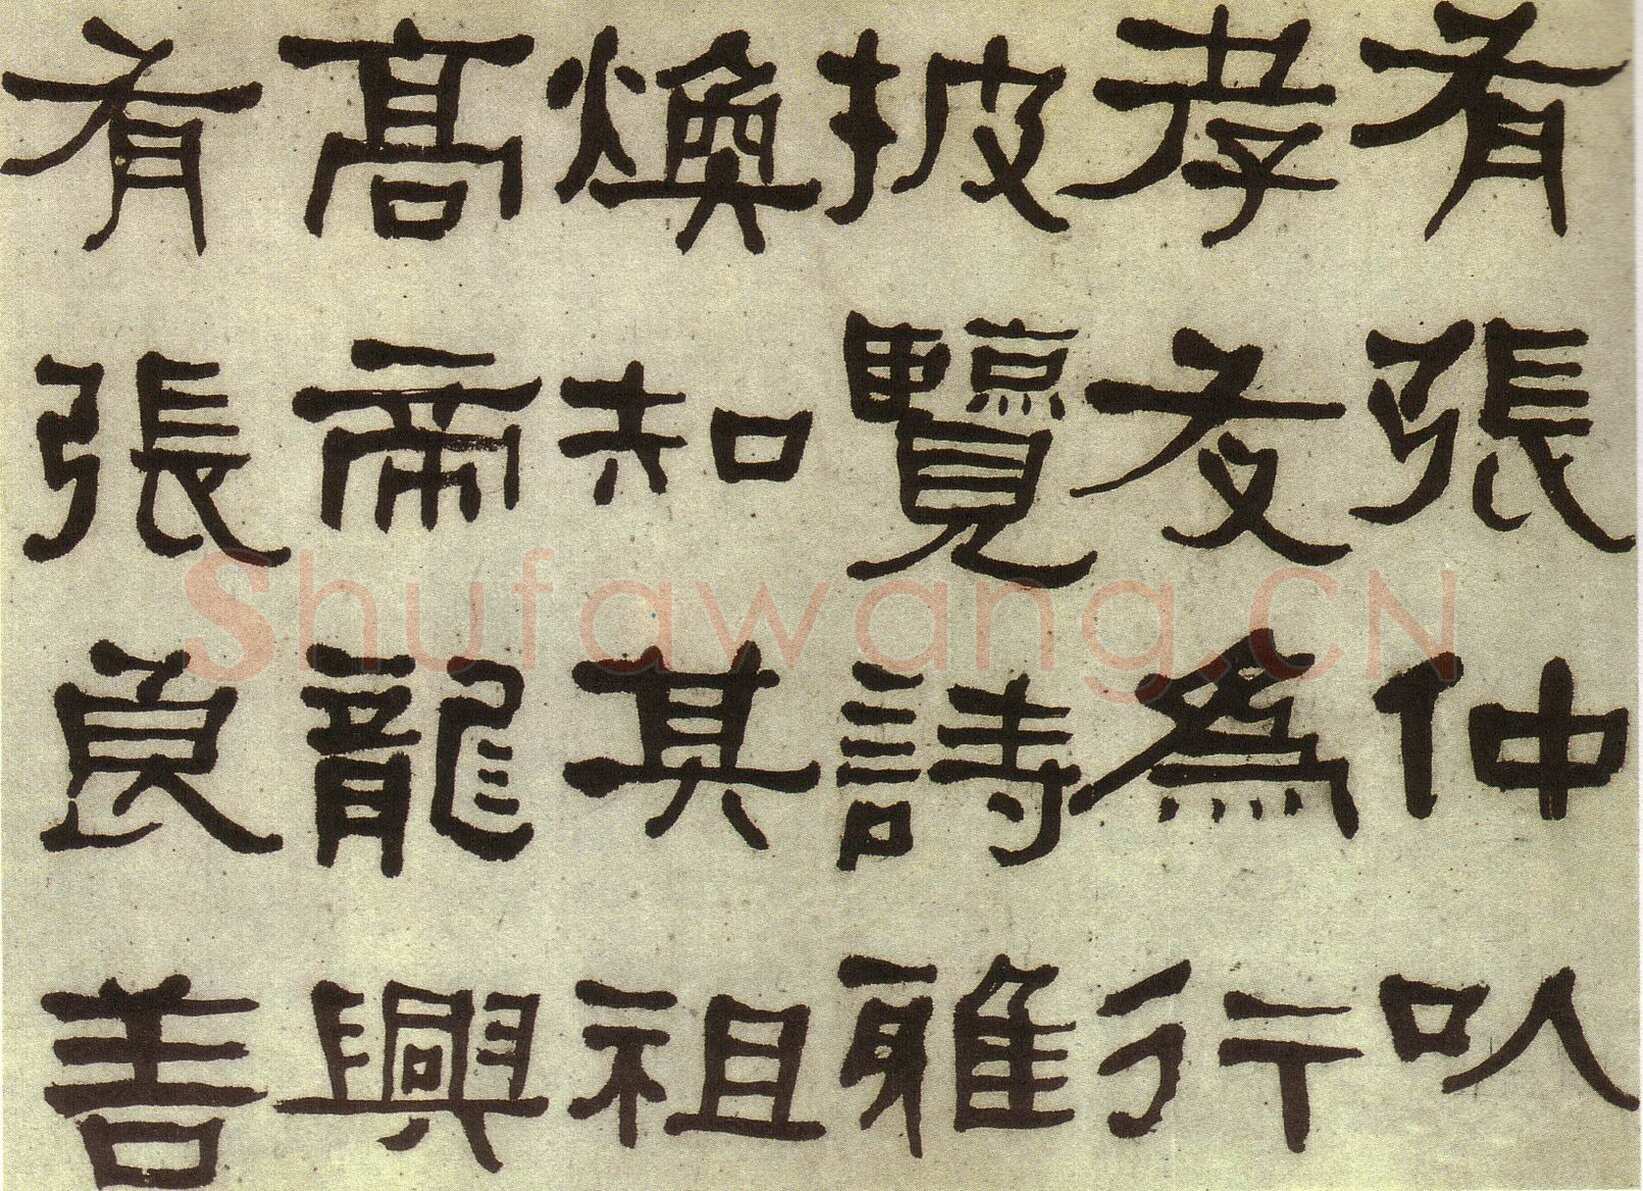 有張仲以
孝友爲行
披覽詩雅
煥知其祖
高帝龍興
有張良善
Shufawang.CN